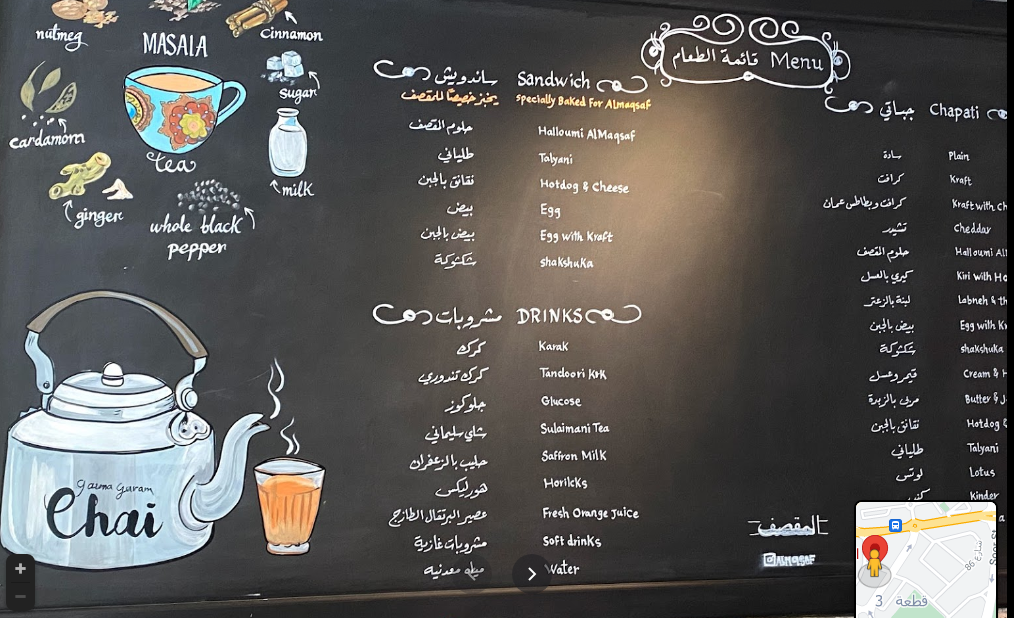 nutmeg
MASALA
cinnamon
sugar
cardamom
tea
milk
ginger
whole black
pepper
garma garam
Chai
قائمة الطعام Menu
ساندويش Sandwich
يخبز خصيصًا للمقصف specially Baked For Almaqsaf
حلوم المقصف Halloumi AlMaqsaf
طلياني Talyani
نقانق بالجبن Hotdog & Cheese
بيض Egg
بيض بالجبن Egg with Kraft
شكشوكة shakshuka
مشروبات DRINKS
كرك Karak
كرك تندوري Tandoori Krk
جلوكوز Glucose
شاي سليماني Sulaimani Tea
حليب بالزعفران Saffron Milk
هورليكس Horlicks
عصير البرتقال الطازج Fresh Orange Juice
مشروبات غازية Soft drinks
مياه معدنية Water
جباتي Chapati
سادة Plain
كرافت Kraft
كرافت وبطاطس عمان Kraft with Ch
تشيدر Cheddar
حلوم المقصف Halloumi Al
كيري بالعسل Kiri with Ho
لبنة بالزعتر Labneh & th
بيض بالجبن Egg with Kr
شكشوكة shakshuka
قيمر وعسل Cream & H
مربى بالزبدة Butter & J
نقانق بالجبن Hotdog &
طلياني Talyani
لوتس Lotus
كندر Kinder
المقصف
@ALMAQSAF
شارع 86
قطعة 3